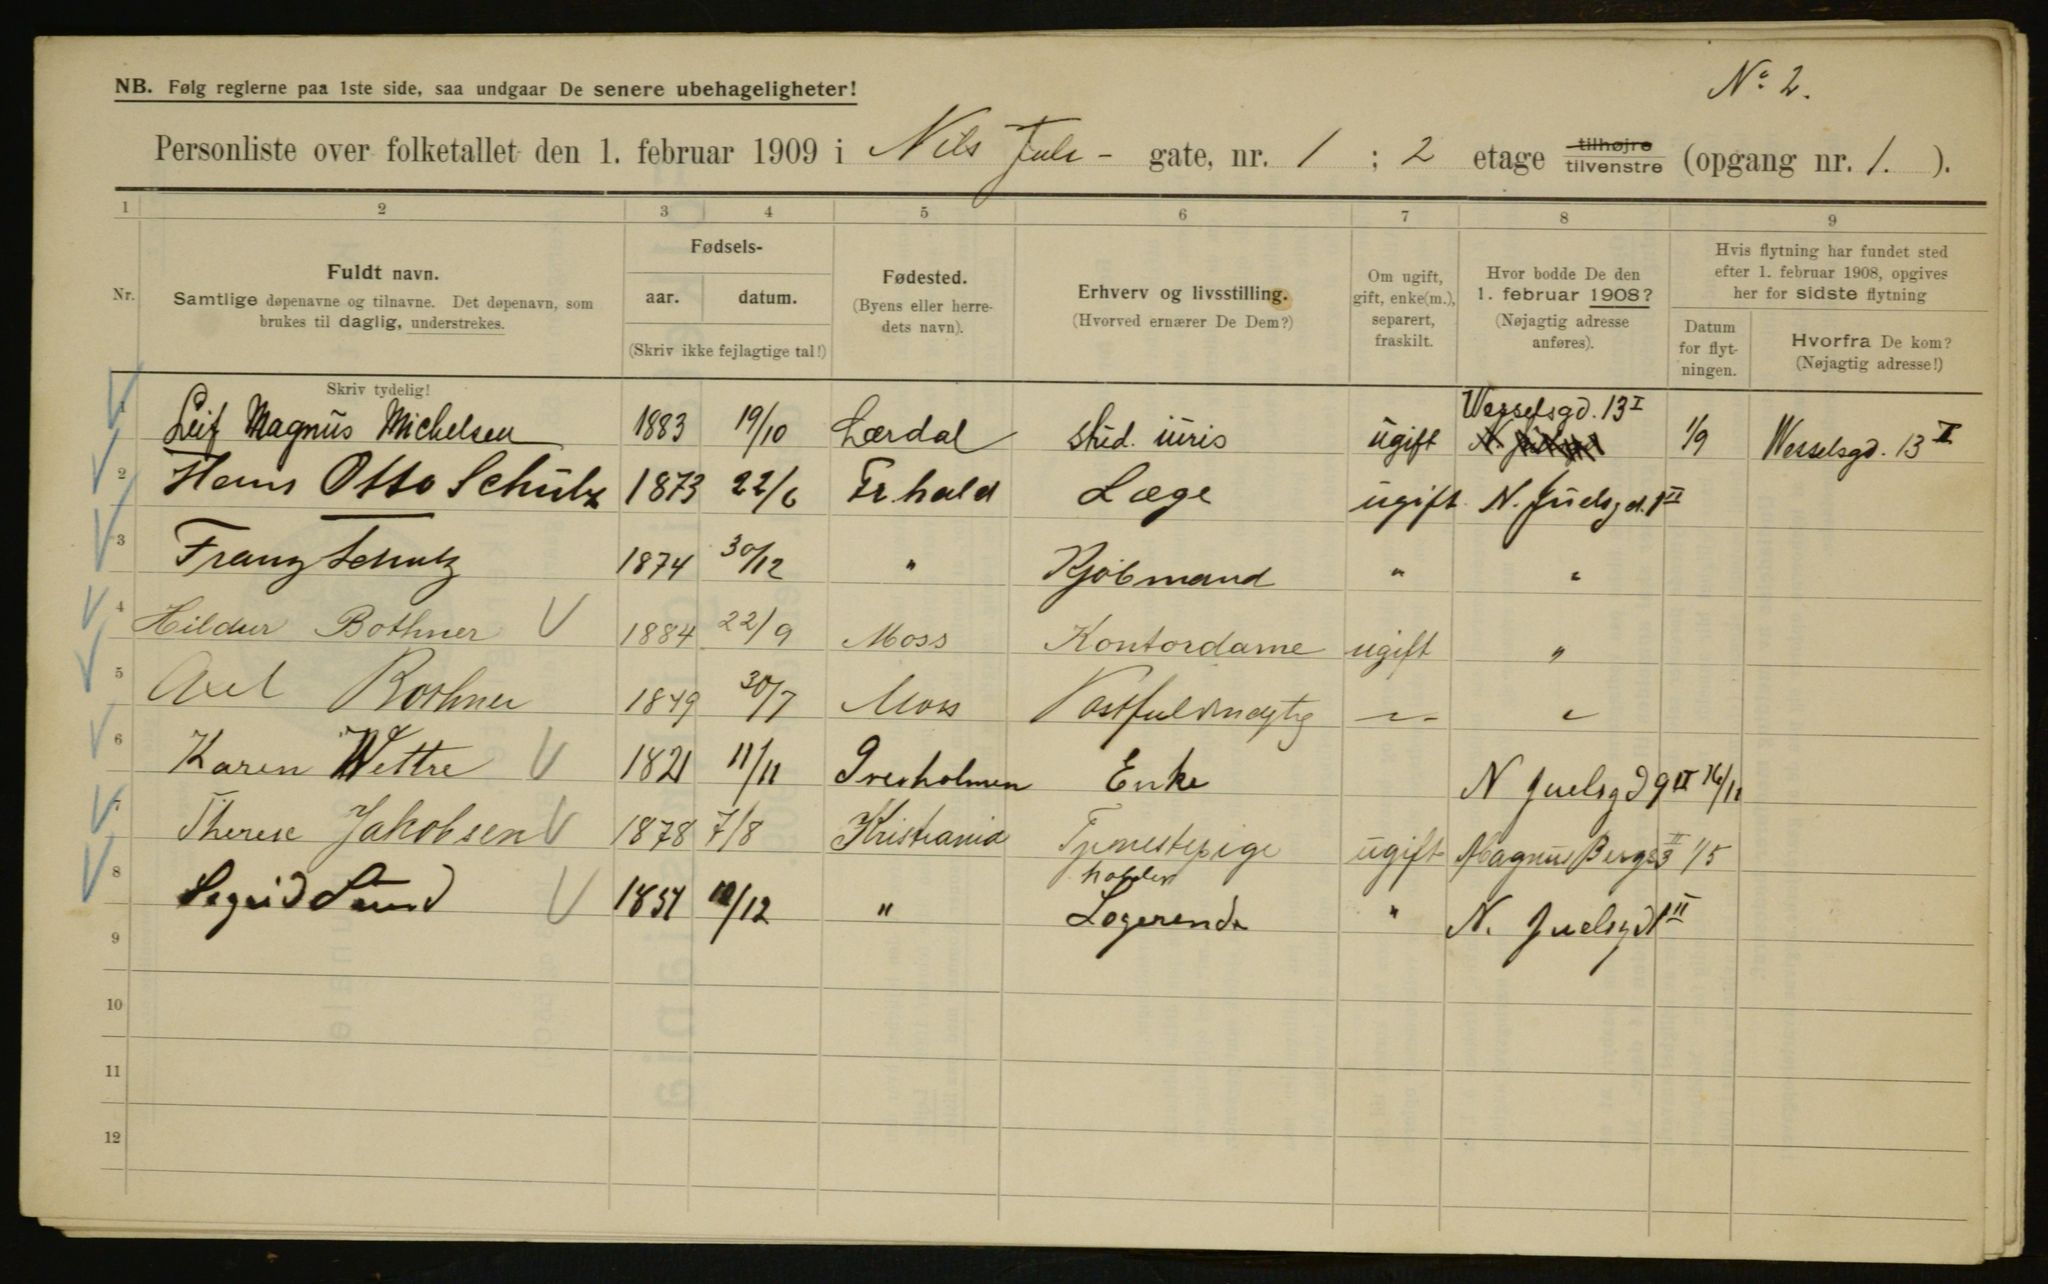 No 2.
NB. Følg reglerne paa 1ste side, saa undgaar De senere ubehageligheter!
Personliste over folketallet den 1. februar 1909 i Nils Juls - gate, nr. 1 ; 2 etage tilhøjre tilvenstre (opgang nr. 1. ).
1 2 3 4 5 6 7 8 9
Nr. Fuldt navn. Samtlige døpenavne og tilnavne. Det døpenavn, som brukes til daglig, understrekes. Skriv tydelig!
Fødsels- aar. datum. (Skriv ikke fejlagtige tal!)
Fødested. (Byens eller herredets navn).
Erhverv og livsstilling. (Hvorved ernærer De Dem?)
Om ugift, gift, enke(m.), separert, fraskilt.
Hvor bodde De den 1. februar 1908? (Nøjagtig adresse anføres).
Hvis flytning har fundet sted efter 1. februar 1908, opgives her for sidste flytning
Datum for flytningen. Hvorfra De kom? (Nøjagtig adresse!)
1 Leif Magnus Michelsen 1883 19/10 Lærdal stud. iuris ugift Wesselsgd. 13 I 1/9 Wesselsgd. 13 I
2 Hans Otto Schulz 1873 22/6 Fr.hald Læge ugift N. Juelsgd. 1 II
3 Franz Schulz 1874 30/12 " Kjøbmand " "
4 Hildur Bothner V 1884 22/9 Moss Kontordame ugift "
5 Axel Bothner 1849 30/7 Moss Postfuldmægtig -"- "
6 Karen Wettre V 1821 11/11 Enke N Juelsgd 9 II 16/11
7 Therese Jakobsen V 1878 7/8 Kristiania Tjenestepige ugift Magnus Bergs 3 II 1/5
8 Sigrid Sund V 1851 12/12 " holder Logerende " N. Juelsgd 1 II
9
10
11
12